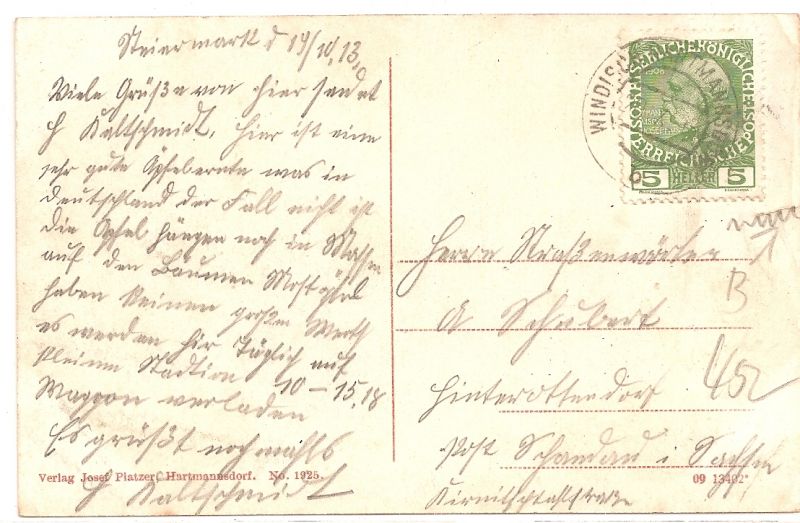 Steiermark d 19/10, 13,
Viele Grüße von hier sendet
H Kaltschmidt. Hier ist eine
sehr gute Apfelernte was in
Deutschland der Fall nicht ist
die Apfel hängen noch in Massen
auf den Bäumen Mostäpfel
haben keinen großen Werth
es werden hir Täglich auf
kleinen Stadtion 10 – 15, 18
Waggon verladen
Es grüßt nochmahls
H Kaltschmidt
Verlag Josef Platzer, Hartmannsdorf. No. 1925.
WINDISCH
KAISERLICHE KÖNIGLICHE
ÖSTERREICHISCHE POST
1908
5 HELLER 5
Herrn Straßenwärter
A Schubert
Hinterottendorf
Post Schandau i Sachsen
Kirnitzschthalstraße
B
452
09 13402